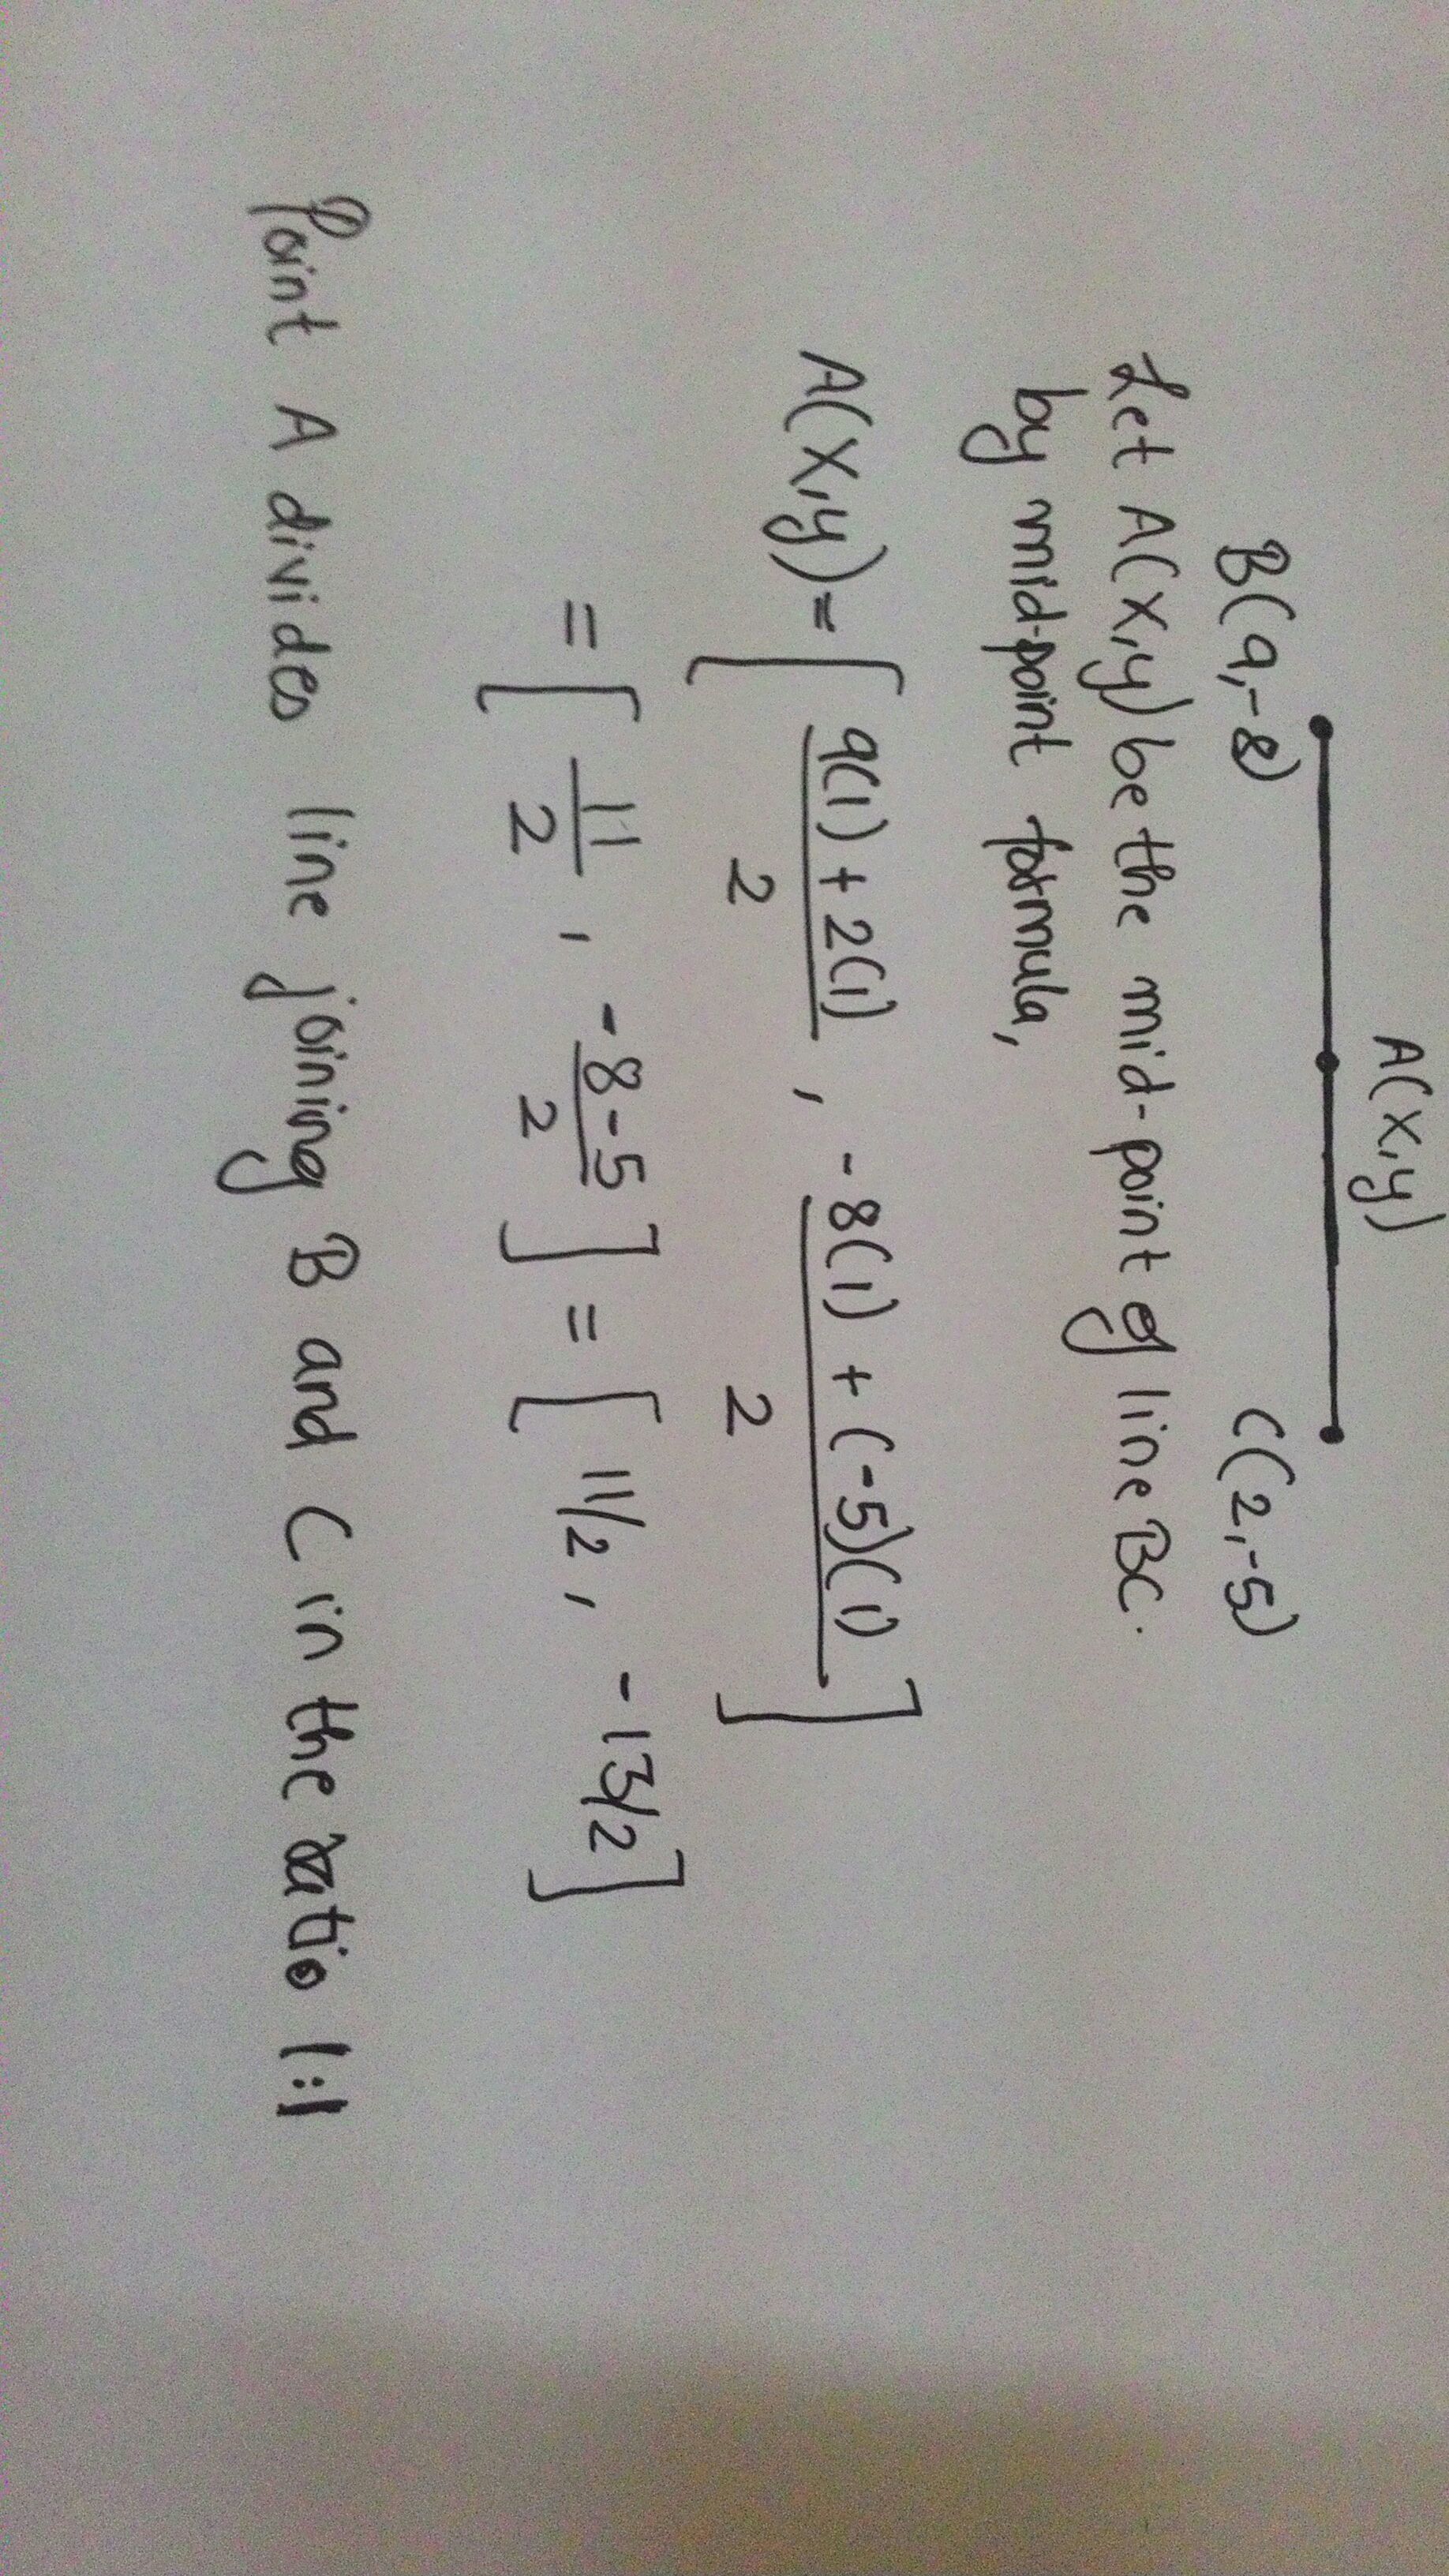 A(x,y)
B(9,-8) C(2,-5)
Let A(x,y) be the mid-point of line BC.
by mid-point formula,
A(x,y) = [ 9(1) + 2(1) / 2 , -8(1) + (-5)(1) / 2 ]
= [ 11 / 2 , -8-5 / 2 ] = [ 11/2 , -13/2 ]
Point A divides line joining B and C in the ratio 1:1